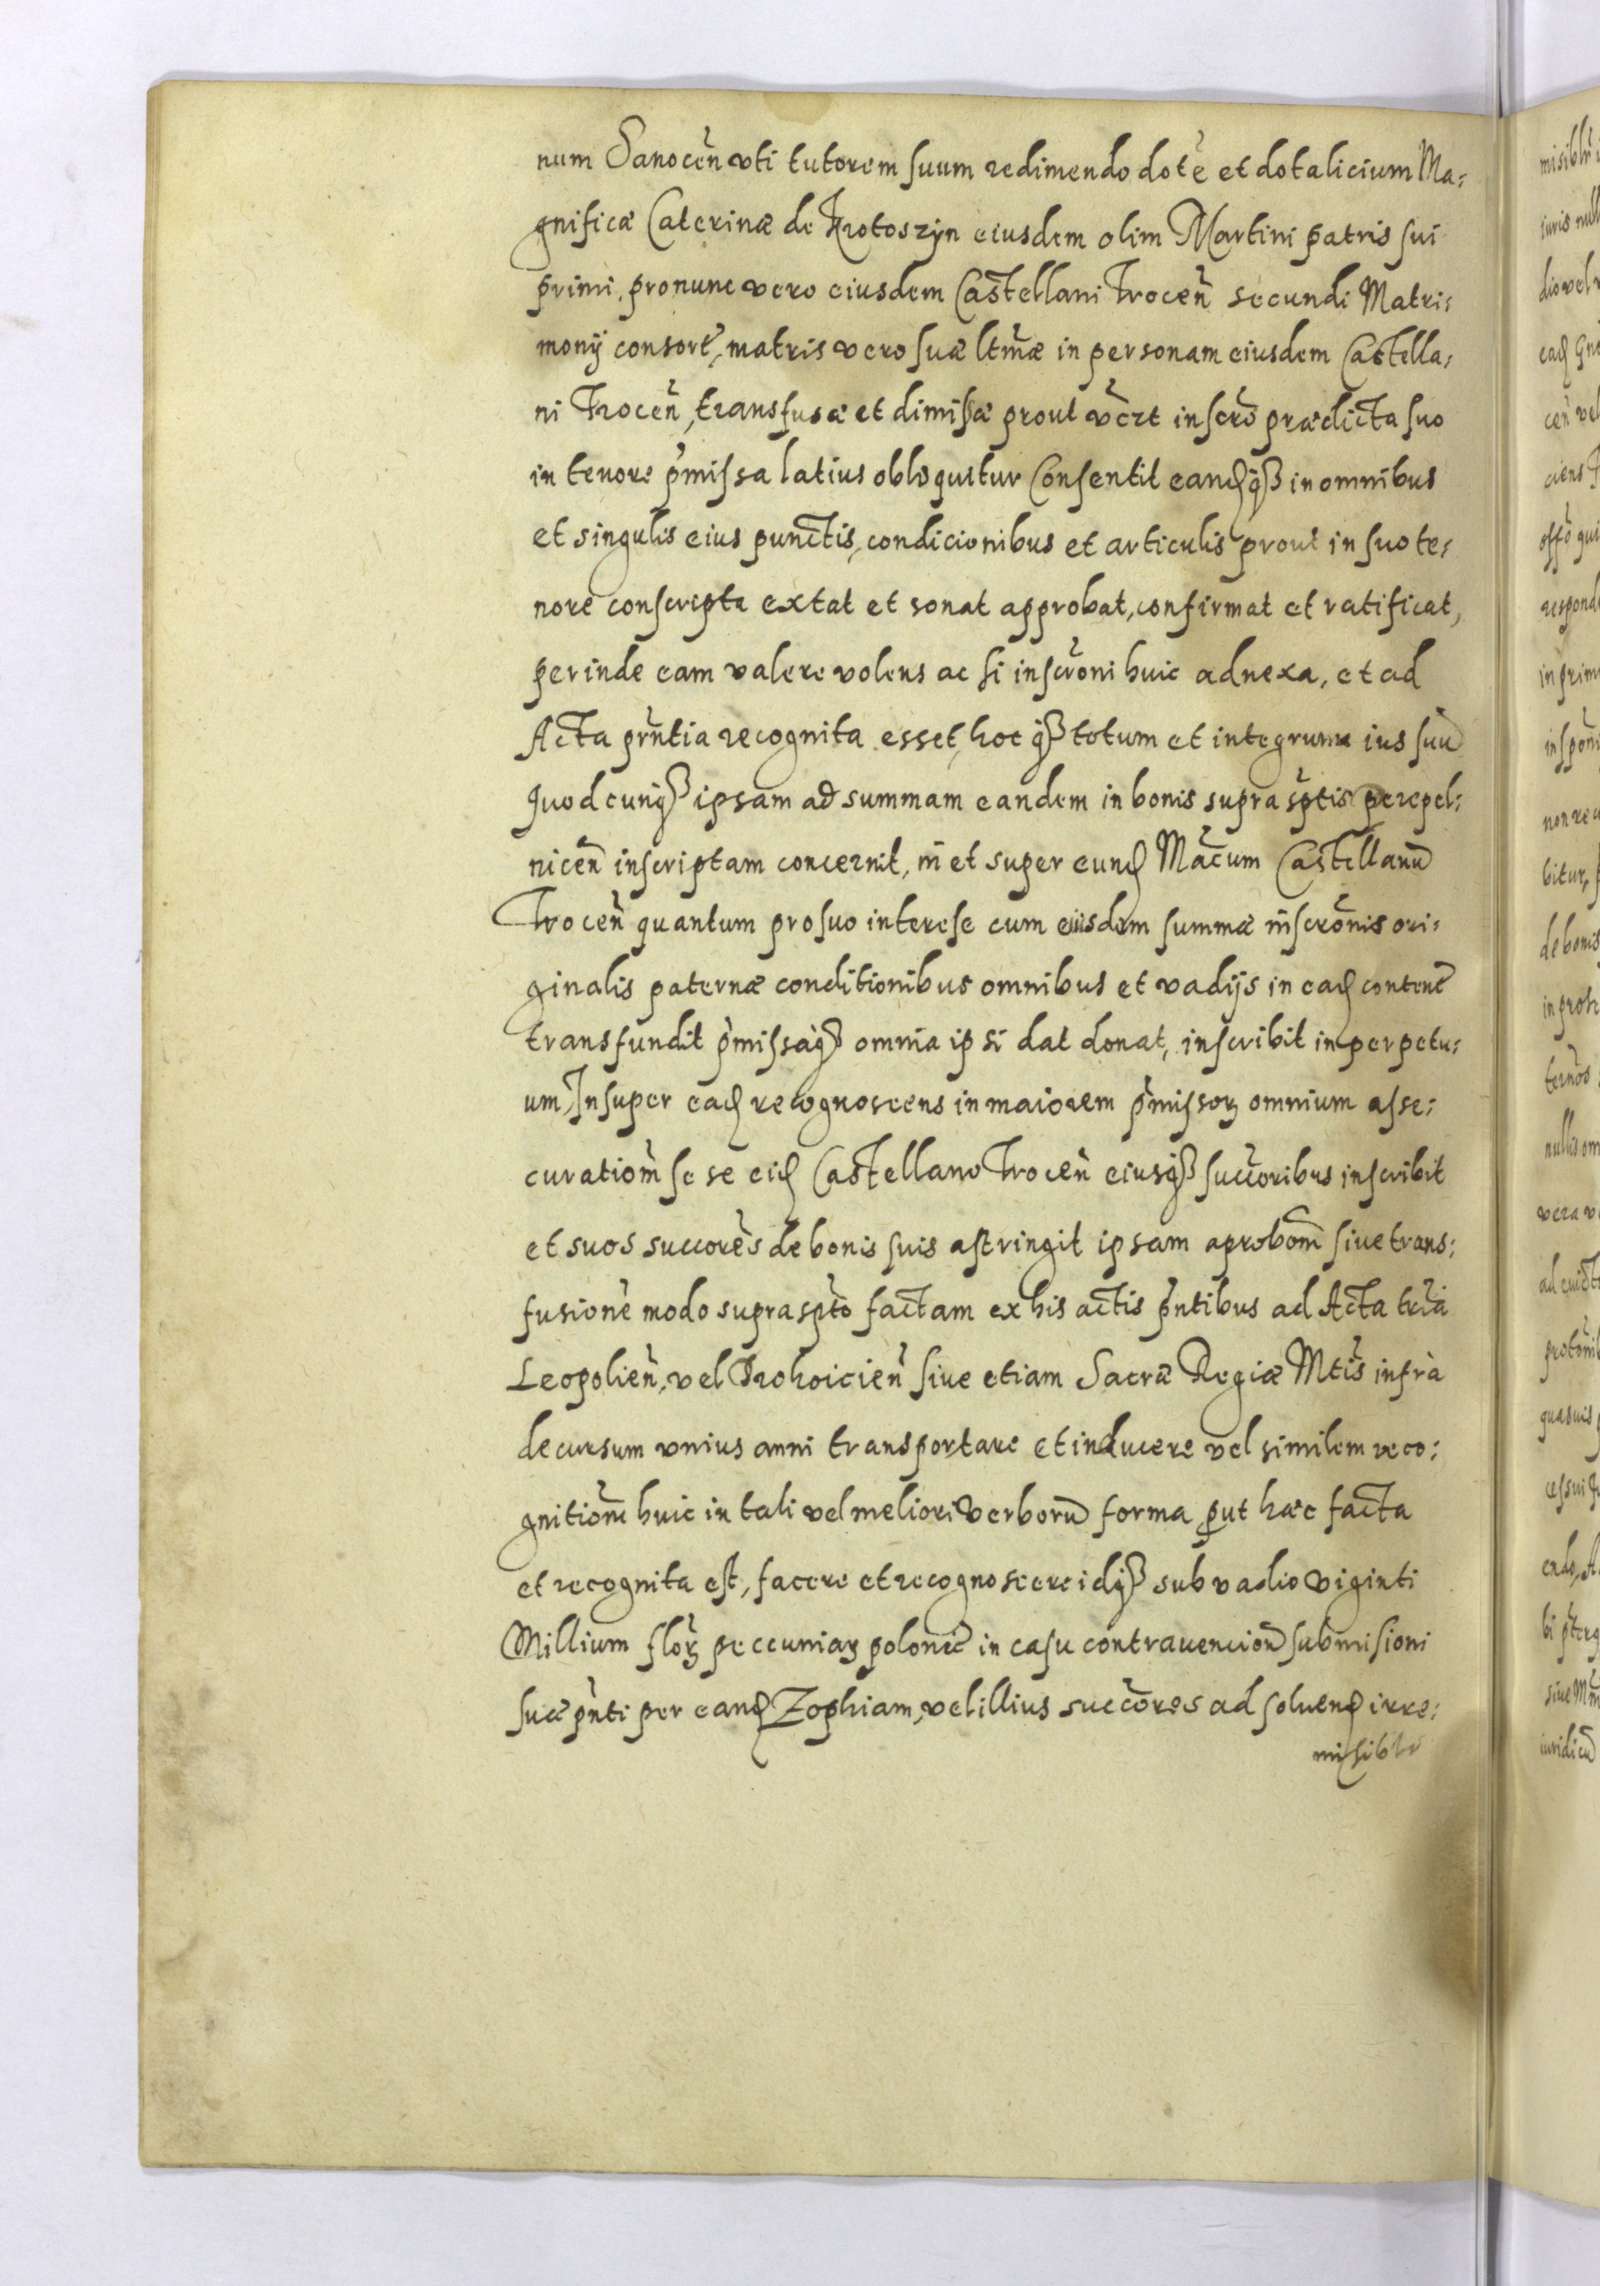 num Sanocen̄ vti tutorem suum redimendo dotē et dotalicium Ma:
gnificæ Caterinæ de Krotoszyn eiusdem olim Martini patris sui
primi, pronunc vero eiusdem Castellani Trocen̄ secundi Matri:
monÿ consort̄, matris vero suæ ltm̄æ in personam eiusdem Castella:
ni Trocen̄, transfusæ et dimissæ prout inscrō prædicta suo
in tenore p̄missa latius obloquitur Consentit eandqꝫ in omnibus
et singulis eius punctis, condicionibus et articulis prout in suo te:
nore conscripta extat et sonat approbat, confirmat et ratificat,
perinde eam valere volens ac si inscrōni huic adnexa, et ad
Acta prn̄tia recognita esset, hoc qꝫ totum et integrum ius suū
quodcunqꝫ ipsam ad summam eandem in bonis supra sptis perepel:
nicen̄ inscriptam concernit, in et super eund Mācum Castellanū
Trocen̄ quantum pro suo interesse cum eiusdem summæ inscrōnis ori:
ginalis paternæ conditionibus omnibus et vadijs in ead content̄
transfundit p̄missaqꝫ omnia ipsi dat donat, inscribit in perpetu:
um, Insuper ead recognoscens in maiorem p̄missoꝝ omnium asse:
curationm̄ se se eid Castellano Trocen̄ eiusqꝫ succoribus inscribit
et suos succores de bonis suis astringit ipsam aprobom̄ siue trans:
fusionē modo supra sptō factam ex his actis pn̄tibus ad Acta trīa
Leopolien̄, vel Drohoicien̄ siue etiam Sacræ Regiæ Mtis infrà
decursum vnius anni transportare et inducere vel similem reco:
gnitionm̄ huic in tali vel meliori verborū forma put hæc facta
et recognita est, facere et recognoscere idqꝫ sub vadio viginti
Millium floꝝ peccuniaꝝ polonic̄ in casu contrauencion̄ submisioni
suæ pn̄ti per eand Zophiam, vel illius succores ad soluend irre:
misible